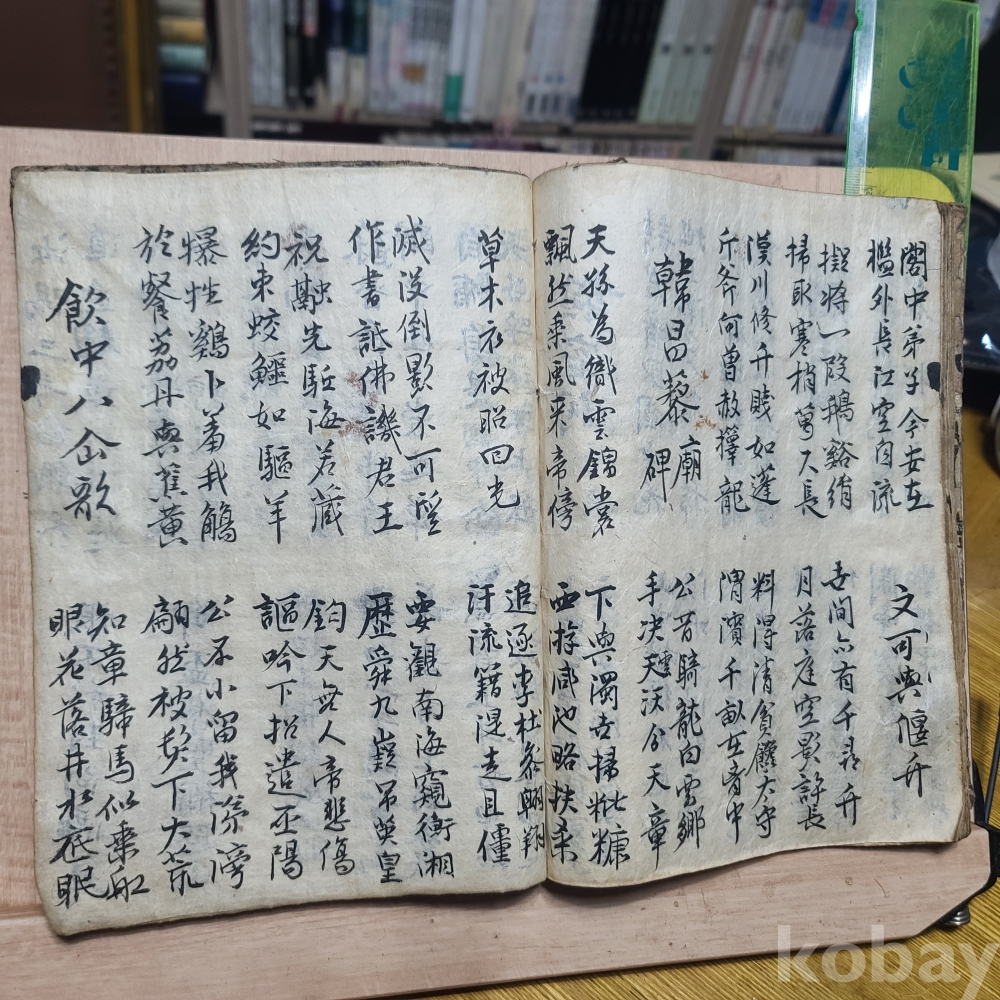 閣中弟子今安在
檻外長江空自流
文可與偃竹
擬將一段鵝谿綃
掃取寒梢萬尺長
世間亦有千尋竹
月落庭空影許長
漢川修竹賤如蓬
斤斧何曽赦籜龍
料得清貧饞太守
渭濱千畝在胷中
韓昌藜廟碑
公昔騎龍白雲鄉
手决天分天章
天孫為織雲錦裳
飄然乘風来帝傍
下與濁世掃粃糠
西游咸池略扶桑
草木衣被昭回光
追逐李杜参翱翔
汗流籍湜走且僵
滅没倒影不可望
作書詆佛譏君王
要觀南海窺衡湘
歷舜九嶷吊英皇
祝融先駈海若藏
約束蛟鱷如驅羊
鈞天無人帝悲傷
謳吟下招遣巫陽
犦牲鷄卜羞我觴
於餐荔丹與蕉黄
公不小留我涕滂
翩然被髮下大荒
飲中八仚歌
知章騎馬似乘舡
眼花落井水底眠
kobay